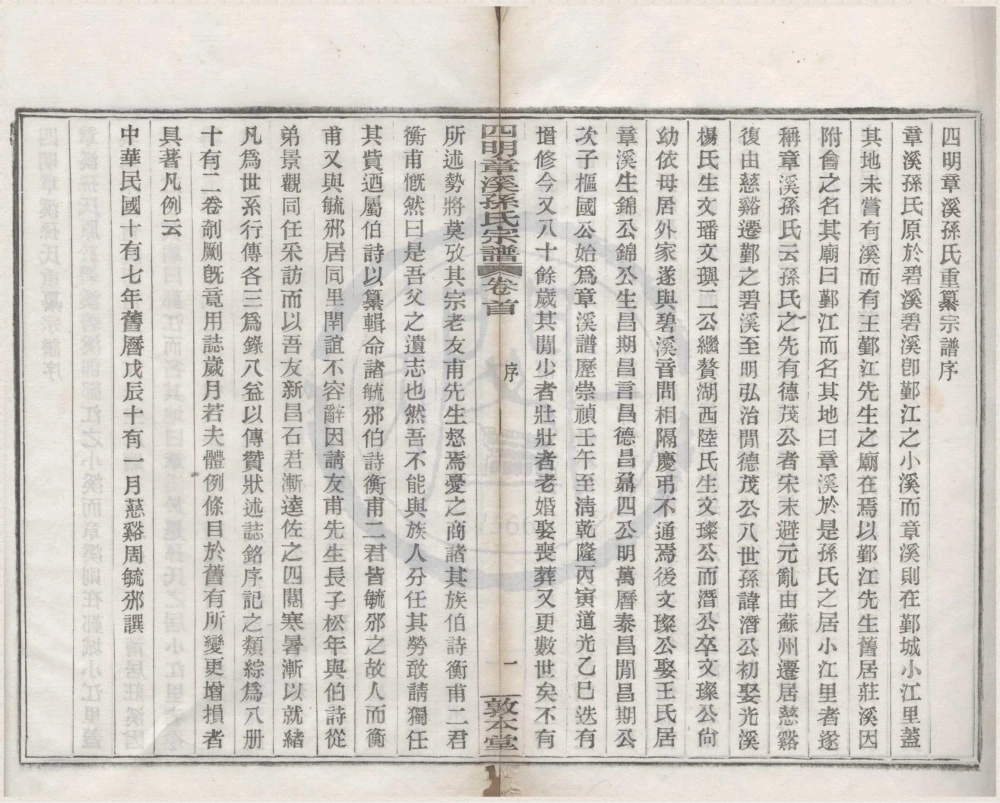 四明章溪孫氏重纂宗譜序
章溪孫氏原於碧溪碧溪卽鄞江之小溪而章溪則在鄞城小江里蓋
其地未嘗有溪而有王鄞江先生之廟在焉以鄞江先生舊居莊溪因
附會之名其廟曰鄞江而名其地曰章溪於是孫氏之居小江里者遂
稱章溪孫氏云孫氏之先有德茂公者宋末避元亂由蘇州遷居慈谿
復由慈谿遷鄞之碧溪至明弘治間德茂公八世孫諱潛公初娶光溪
楊氏生文璠文璵二公繼贅湖西陸氏生文璨公而潛公卒文璨公尙
幼依母居外家遂與碧溪音問相隔慶弔不通焉後文璨公娶王氏居
章溪生錦公錦公生昌期昌言昌德昌幕四公明萬曆泰昌間昌期公
次子樞國公始爲章溪譜歷崇禎壬午至淸乾隆丙寅道光乙巳迭有
增修今又八十餘歲其間少者壯壯者老婚娶喪葬又更數世矣不有
四明章溪孫氏宗譜 卷首 序 一 敦本堂
所述勢將莫攷其宗老友甫先生惄焉憂之商諸其族伯詩衡甫二君
衡甫慨然曰是吾父之遺志也然吾不能與族人分任其勞敢請獨任
其費迺屬伯詩以纂輯命諸毓邠伯詩衡甫二君皆毓邠之故人而衡
甫又與毓邠居同里閈誼不容辭因請友甫先生長子松年與伯詩從
弟景觀同任采訪而以吾友新昌石君漸逵佐之四閱寒暑漸以就緒
凡爲世系行傳各三爲錄八益以傳贊狀述誌銘序記之類綜爲八册
十有二卷剞劂旣竟用誌歲月若夫體例條目於舊有所變更增損者
具著凡例云
中華民國十有七年舊曆戊辰十有一月慈谿周毓邠譔